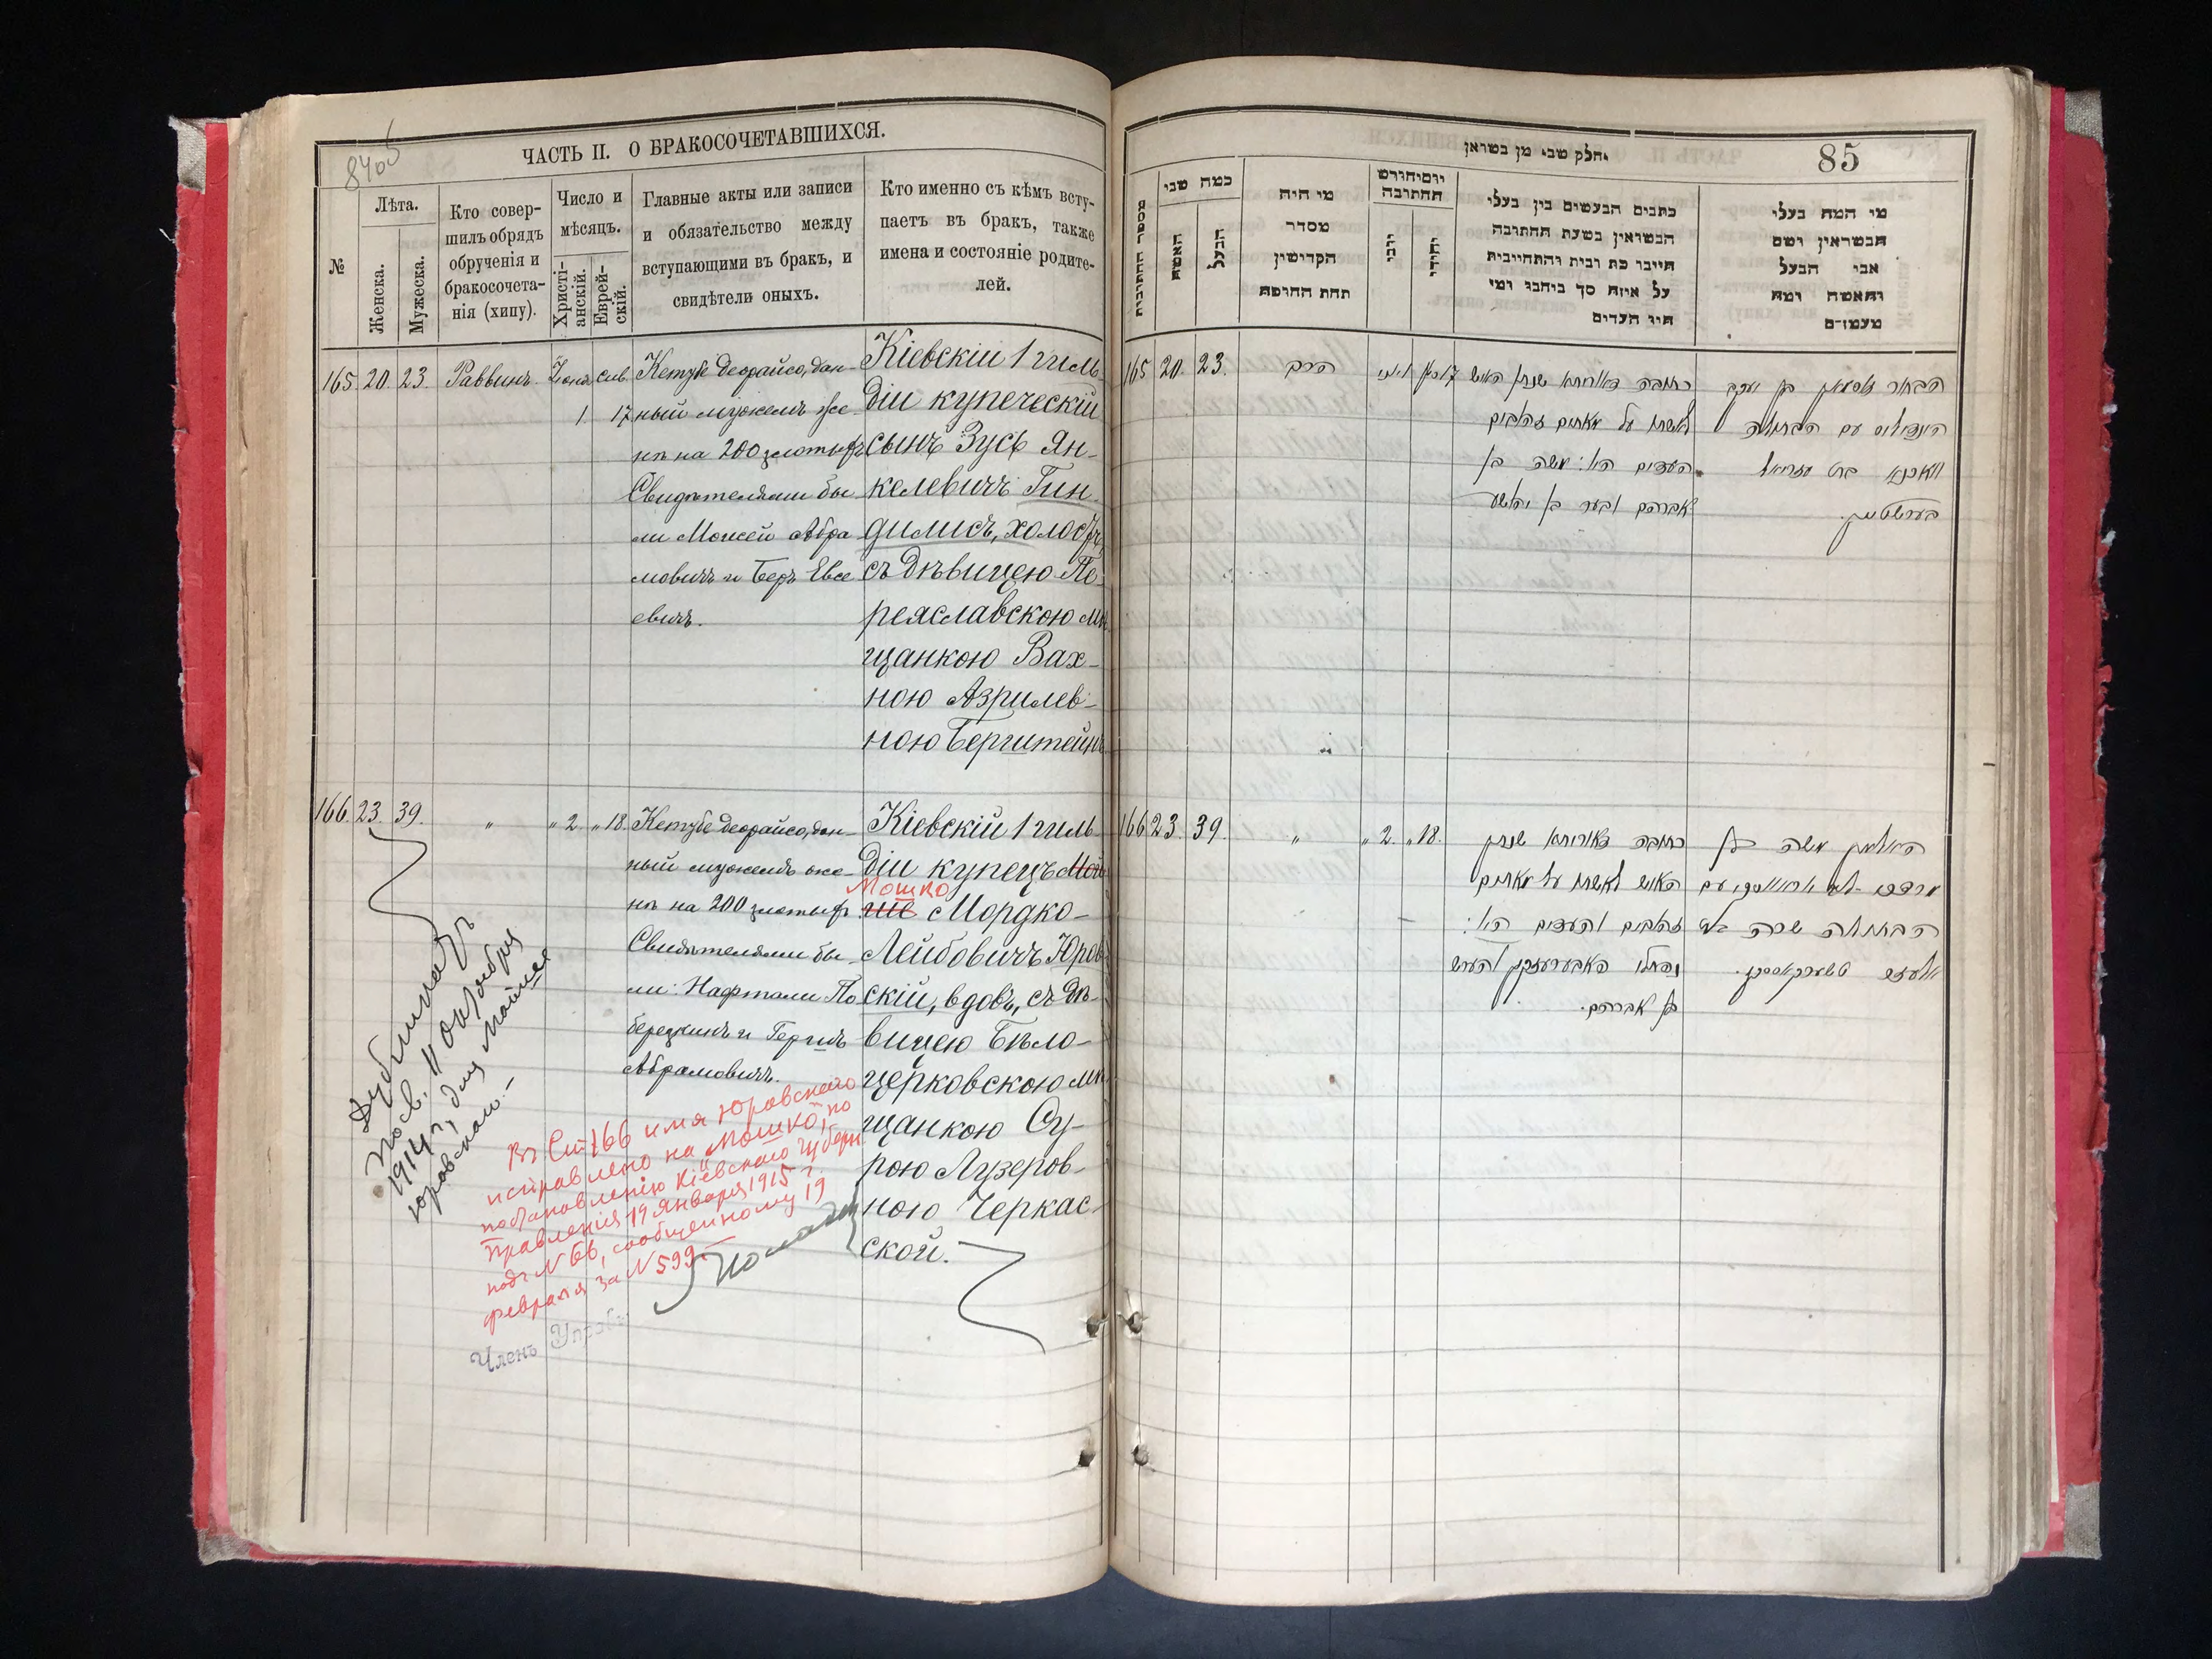 ЧАСТЬ II. О БРАКОСОЧЕТАВШИХСЯ.
№
Лѣта.
Женска.
Мужеска.
Кто совер-
шилъ обрядъ
обрученія и
бракосочета-
нія (хипу).
Число и
мѣсяцъ.
Христі-
анскій.
Еврей-
скій.
Главные акты или записи
и обязательство между
вступающими въ бракъ, и
свидѣтели оныхъ.
Кто именно съ кѣмъ всту-
паетъ въ бракъ, также
имена и состояніе родите-
лей.
165. 20. 23. Раввинъ. Іюня 1 Сив. 17
Кетубе деорайсо, дан-
ный мужемъ же-
нѣ на 200 злотыхъ
Свидѣтелями бы-
ли Моисей Абра
мовичъ и Беръ Евсе
евичъ.
Кіевскій 1 гиль
діи купеческій
сынъ Зусь Ян-
келевичъ Гин-
дилисъ, холостъ,
съ дѣвицею Пе-
реяславскою мѣ
щанкою Вах-
ною Азрилев-
ною Бергштейнъ
166. 23. 39. " " 2. " 18.
Кетубе деорайсо, дан-
ный мужемъ же-
нѣ на 200 злотыхъ
Свидѣтелями бы-
ли: Нафтали По
березкинъ и Гершъ
Абрамовичъ.
Кіевскій 1 гиль
діи купецъ Мой
Мошко
ше Мордко-
Лейбовичъ Юров
скій, вдовъ, съ дѣ-
вицею Бѣло-
церковскою мѣ
щанкою Су-
рою Лузеров-
ною Черкас-
ской.
Дубликатъ
11 октября
1914 г, для Мойше
Юровскаго.-
Въ Ст 166 имя Юровскаго
исправлено на "Мошко", по
постановленію Кіевскаго Губерн
Правленія 19 января 1915 г.
подъ № 66, сообщенному 19
февраля за № 599.
Членъ Управы
חלק שני מן הנשואין
85
מספר החתונות
כמה שני
האשה
הבעל
מי היה
מסדר
הקדישין
תחת החופה
יום וחודש
החתונה
נוצרי
יהודי
כתבים הנעשים בין בעלי
הנשואין בשעת החתונה
חייבו כת ובית והתחייבות
על איזה סך ביחבו ומי
היו העדים
מי המה בעלי
הנשואין ושם
אבי הבעל
והאשה ומה
מעמדם
165 20. 23. הרב
כתובה דאורייתא שנתן האיש
לאשתו על מאתים זהובים
העדים היו: משה בן
אברהם ובער בן יהושע
הבחור זוסמאן בן יעקב
הינדעליס עם הבתולה
וואכנא בת עזריאל
בערגשטיין.
166 23. 39. " " 2. " 18.
כתובה דאורייתא שנתן
האיש לאשתו על מאתים
זהובים והעדים היו:
נפתלי פאבערעזקין והערש
בן אברהם.
האלמן משה בן
מרדכי ליב יוראווסקי עם
הבתולה שרה בת
אלעזר טשערקאסקי.